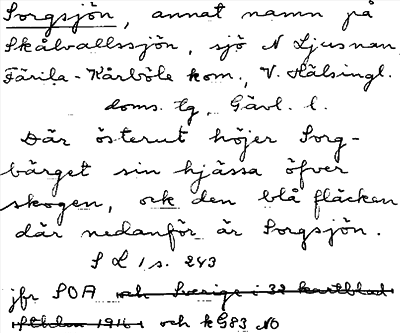 Sorgsjön, annat namn på
Skålvallssjön, sjö N Ljusnan
Färila-Kårböle kom., V. Hälsingl.
doms. tg, Gävl. l.
Där österut höjer Sorg-
bärget sin hjässa öfver
skogen, ock den blå fläcken
där nedanför är Sorgsjön.
S L 1 s. 243
jfr SOA och Sverige i 32 kartblad
Sthlm 1916 och kG83 NO